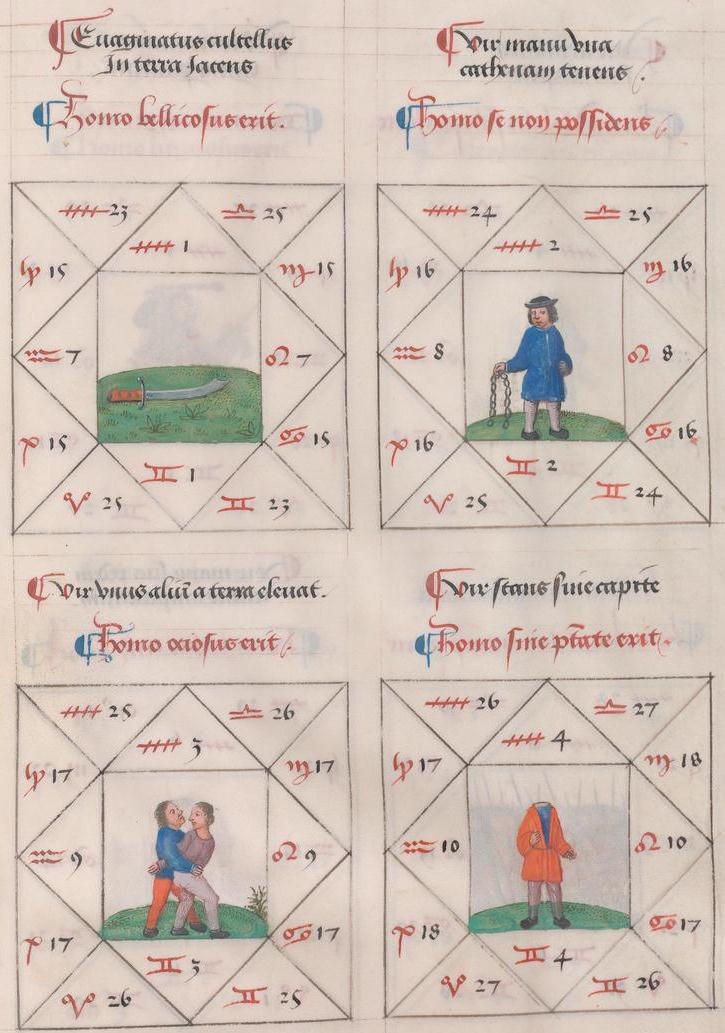 Euaginatus cultellus
In terra Iacens
Homo bellicosus erit.
♐ 23 ♎ 25
♐ 1
♑ 15 ♍ 15
♒ 7 ♌ 7
♓ 15 ♋ 15
♊ 1
♈ 25 ♊ 23
Vir manu vna
cathenam tenens.
Homo se non possidens
♐ 24 ♎ 25
♐ 2
♑ 16 ♍ 16
♒ 8 ♌ 8
♓ 16 ♋ 16
♊ 2
♈ 25 ♊ 24
Vir vnus aliū a terra eleuat.
Homo ociosus erit.
♐ 25 ♎ 26
♐ 3
♑ 17 ♍ 17
♒ 9 ♌ 9
♓ 17 ♋ 17
♊ 3
♈ 26 ♊ 25
Vir stans sine capite
Homo sine ptāte erit.
♐ 26 ♎ 27
♐ 4
♑ 17 ♍ 18
♒ 10 ♌ 10
♓ 18 ♋ 17
♊ 4
♈ 27 ♊ 26